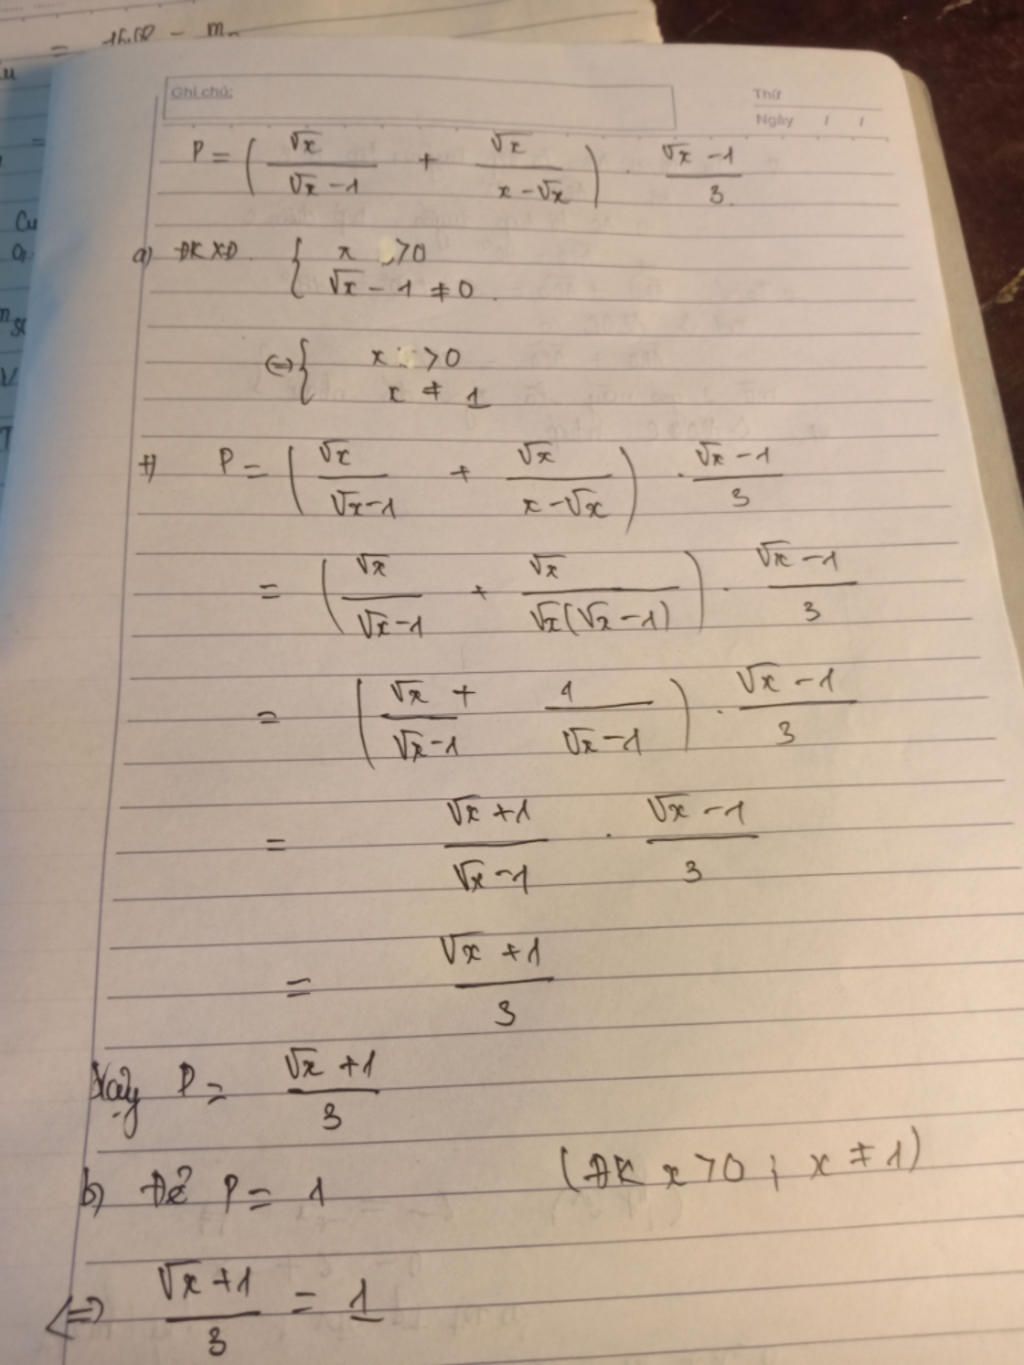 = 16,68 -
Ghi chú:
Thứ
Ngày / /
P = ( √x / (√x - 1) + √x / (x - √x) ) . (√x - 1) / 3
a) ĐKXĐ. { x > 0
√x - 1 ≠ 0.
⇔ { x > 0
x ≠ 1
+) P = ( √x / (√x - 1) + √x / (x - √x) ) . (√x - 1) / 3
= ( √x / (√x - 1) + √x / (√x(√x - 1)) ) . (√x - 1) / 3
= ( √x / (√x - 1) + 1 / (√x - 1) ) . (√x - 1) / 3
= (√x + 1) / (√x - 1) . (√x - 1) / 3
= (√x + 1) / 3
Vậy P = (√x + 1) / 3
b) Để P = 1 (ĐK x > 0 ; x ≠ 1)
⇔ (√x + 1) / 3 = 1